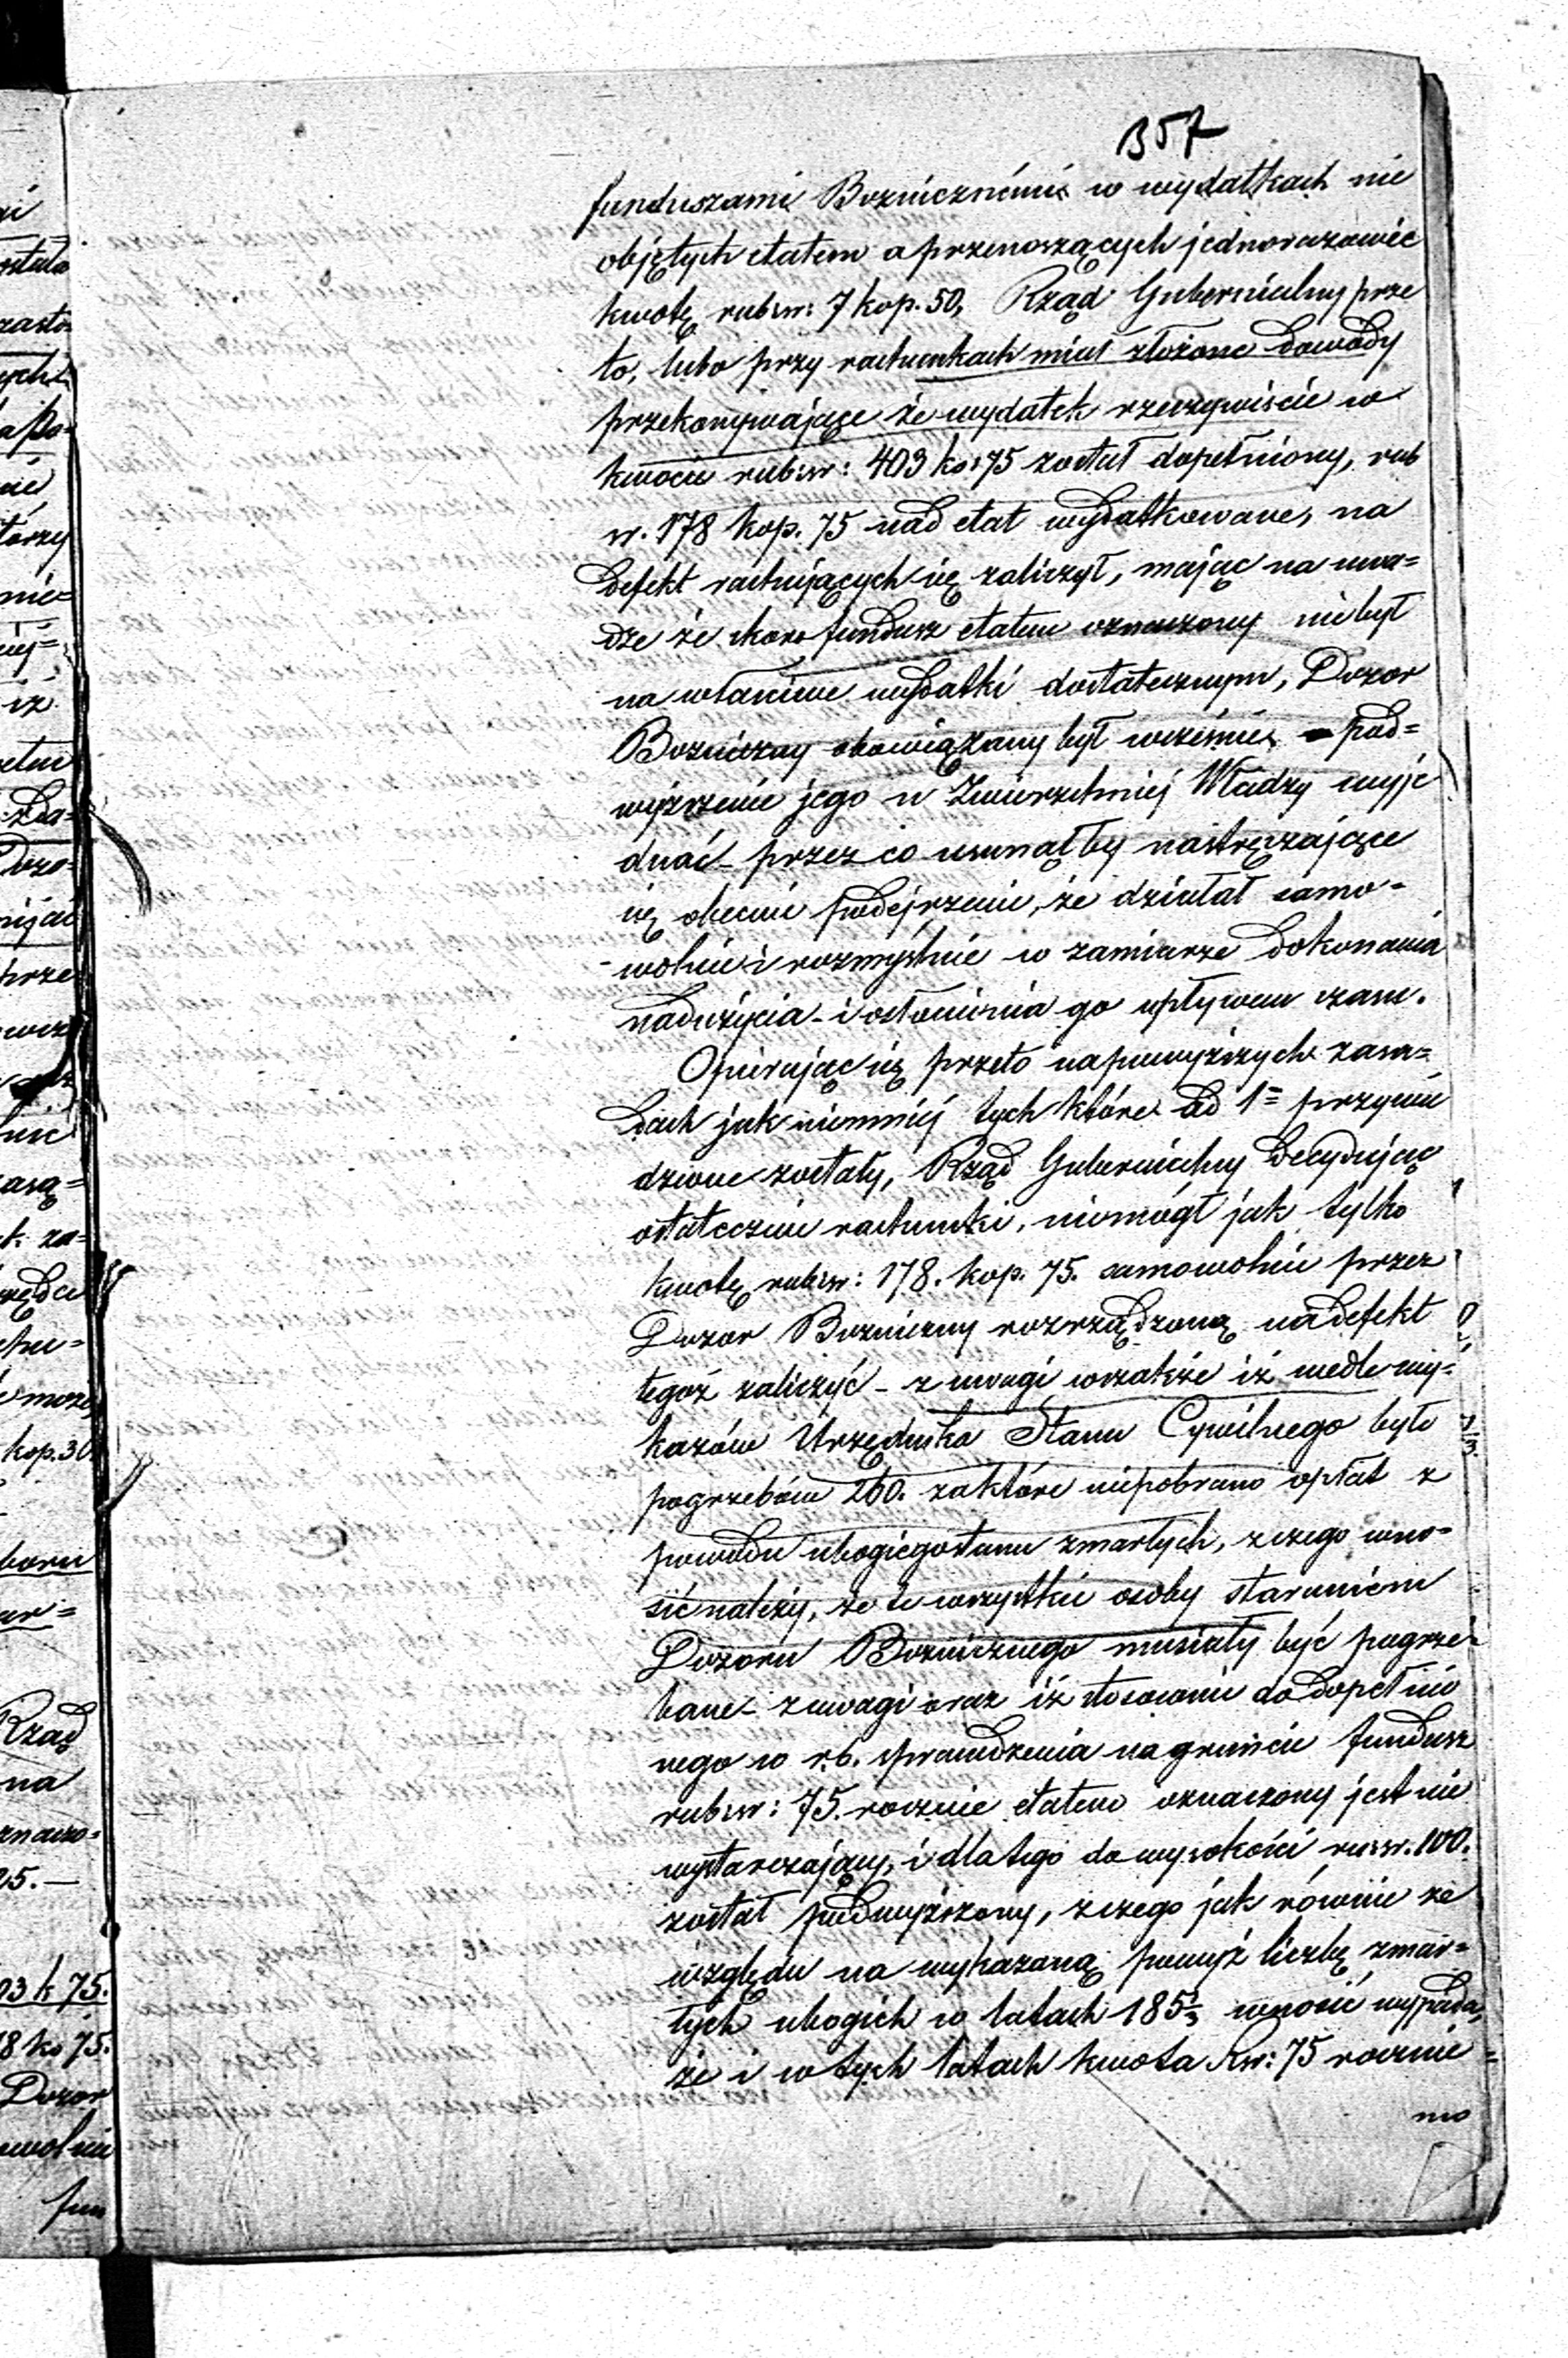 357
funduszami Boznicznémi w wydatkach nie
objętych etatem a przenoszących jednorazowie
kwotę rub:sr: 7 kop. 50, Rząd Gubernialny prze
to, lubo przy rachunkach miał złożone dowody
przekonywające że wydatek rzeczywiście w
kwocie rub:sr: 403 ko: 75 został dopełniony, rub
sr. 178 kop. 75 nad etat wydatkowane, na
defekt rachujących się zaliczył, mając na uwa=
dze że skoro fundusz etatem oznaczony nie był
na właściwe wydatki dostatecznym, Dozor
Bozniczny obowiązany był wcześnie pod=
wyższenie jego u Zwierzchniej Władzy wyje
dnać – przez co usunął by nastręczające
się obecnie podejrzenie, że działał samo=
wolnie i rozmyślnie w zamiarze dokonania
nadużycia – i osłonienia go upływem czasu.
Opierając się przeto na powyższych zasa=
dach jak niemniej tych które ad 1= przywie
dzione zostały, Rząd Gubernialny decydując
ostatecznie rachunki, niemógł jak tylko
kwotę rub:sr: 178. kop. 75. samowolnie przez
Dozor Bozniczny rozrządzoną na defekt
tegoż zaliczyć – z uwagi wszakże iż wedle wy=
kazów Urzędnika Stanu Cywilnego było
pogrzebów 260. za które niepobrano opłat z
powodu ubogiego stanu zmarłych, z czego wno=
sić należy, że te wszystkie osoby staraniem
Dozoru Boznicznego musiały być pogrze=
bane z uwagi oraz iż stosownie do dopełnio
nego w r.b. sprawdzenia na gruncie fundusz
rub:sr: 75. rocznie etatem oznaczony jest nie
wystarczający, i dla tego do wysokości rusr. 100.
został podwyższony, z czego jak równie ze
względu na wykazaną powyż liczbę zmar=
łych ubogich w latach 185 wnosić wypada,
że i w tych latach kwota Rsr: 75 rocznie